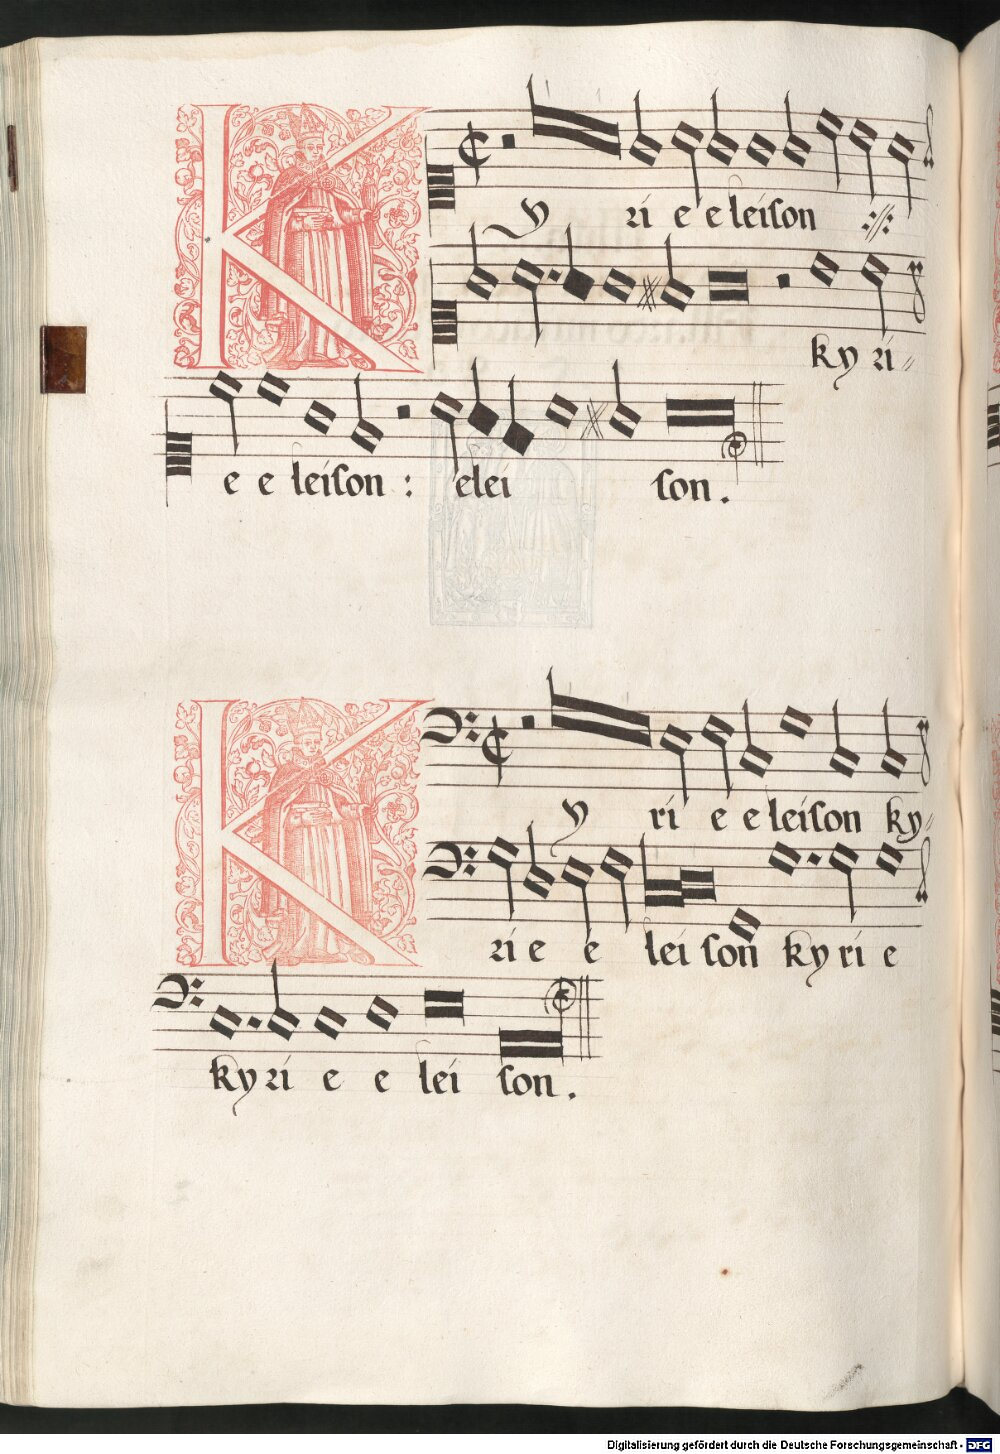 Kyri e e leison ://:
kyri
e e leison : elei son.
Ky ri e e leison ky
ri e e lei son kyri e
kyri e e lei son.
Digitalisierung gefördert durch die Deutsche Forschungsgemeinschaft - DFG